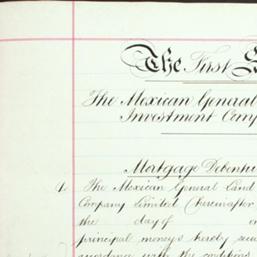 The First
The Mexican General
Investment Comp
Mortgage Debentu
1. The Mexican General Land
Company Limited (hereafter
the day of
principal moneys hereby secu
accordance with the conditions